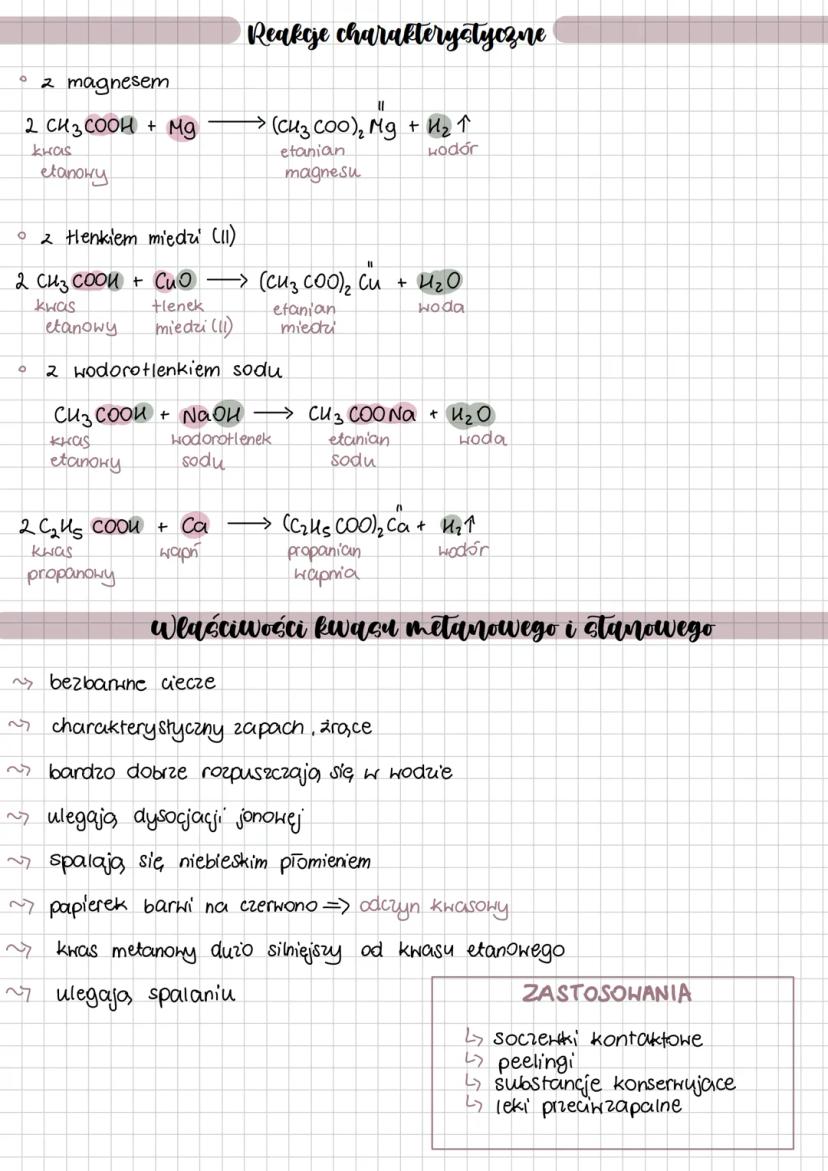 Reakcje charakterystyczne
z magnesem
2 CH₃COOH + Mg → (CH₃COO)₂Mg + H₂↑
II
kwas etanowy etanian magnesu wodór
z tlenkiem miedzi (II)
2 CH₃COOH + CuO → (CH₃COO)₂Cu + H₂O
II
kwas etanowy tlenek miedzi (II) etanian miedzi woda
z wodorotlenkiem sodu
CH₃COOH + NaOH → CH₃COONa + H₂O
kwas etanowy wodorotlenek sodu etanian sodu woda
2 C₂H₅COOH + Ca → (C₂H₅COO)₂Ca + H₂↑
II
kwas propanowy wapń propanian wapnia wodór
Właściwości kwasu metanowego i etanowego
bezbarwne ciecze
charakterystyczny zapach, żrące
bardzo dobrze rozpuszczają się w wodzie
ulegają dysocjacji jonowej
spalają się niebieskim płomieniem
papierek barwi na czerwono => odczyn kwasowy
kwas metanowy dużo silniejszy od kwasu etanowego
ulegają spalaniu
ZASTOSOWANIA
↳ soczewki kontaktowe
↳ peelingi
↳ substancje konserwujące
↳ leki przeciwzapalne